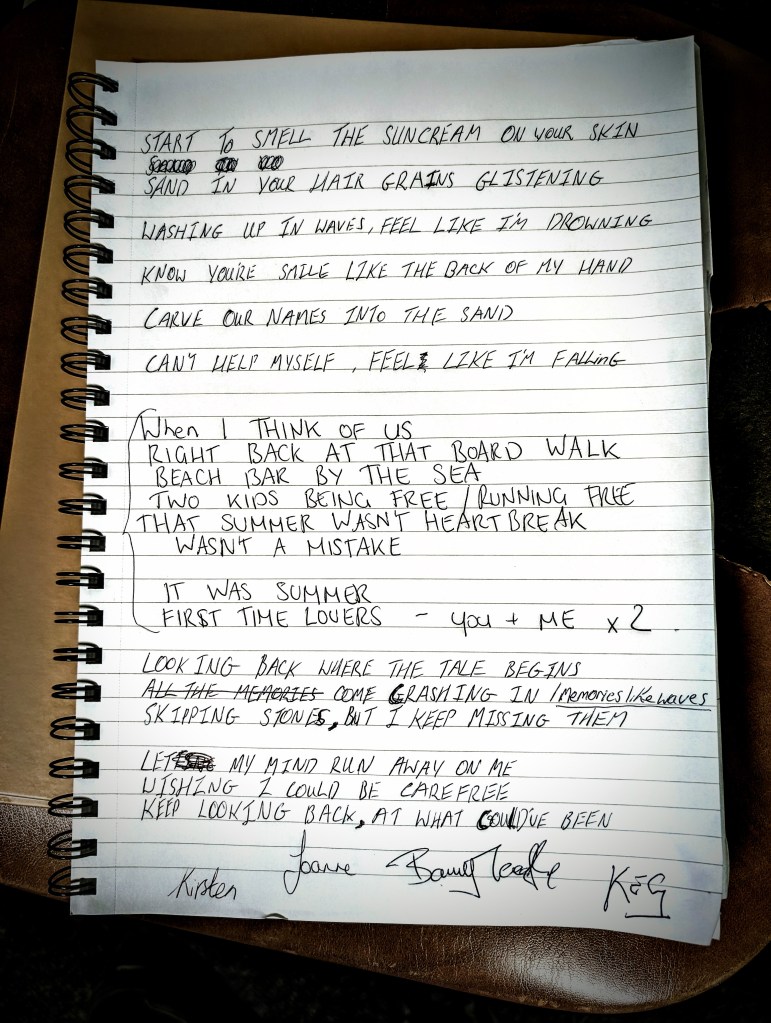 START To SMELL THE SUNCREAM ON YOUR SKIN
SAND IN YOUR HAIR GRAINS GLISTENING
WASHING UP IN WAVES, FEEL LIKE I'M DROWNING
KNOW YOU'RE SMILE LIKE THE BACK OF MY HAND
CARVE OUR NAMES INTO THE SAND
CAN'T HELP MYSELF, FEEL LIKE I'M FALLinG
When I THINK OF US
RIGHT BACK AT THAT BOARD WALK
BEACH BAR BY THE SEA
TWO KIDS BEING FREE / RUNNING FREE
THAT SUMMER WASN'T HEARTBREAK
WASN'T A MISTAKE
IT WAS SUMMER
FIRST TIME LOVERS - you + ME x2.
LOOKING BACK WHERE THE TALE BEGINS
ALL THE MEMORIES COME CRASHING IN /Memories like waves
SKIPPING STONES, BUT I KEEP MISSING THEM
LET MY MIND RUN AWAY ON ME
WISHING I COULD BE CAREFREE
KEEP LOOKING BACK, AT WHAT COULD'VE BEEN
Kirsten Joanne K&G